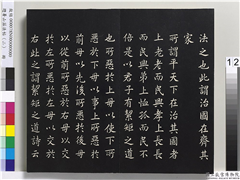 法之也此謂治國在齊其
家
所謂平天下在治其國者
上老老而民興孝上長長
而民興弟上恤孤而民不
倍是以君子有絜矩之道
也所惡於上毋以使下所
惡於下毋以事上所惡於
前毋以先後所惡於後毋
以從前所惡於右毋以交
於左所惡於左毋以交於
右此之謂絜矩之道詩云
12